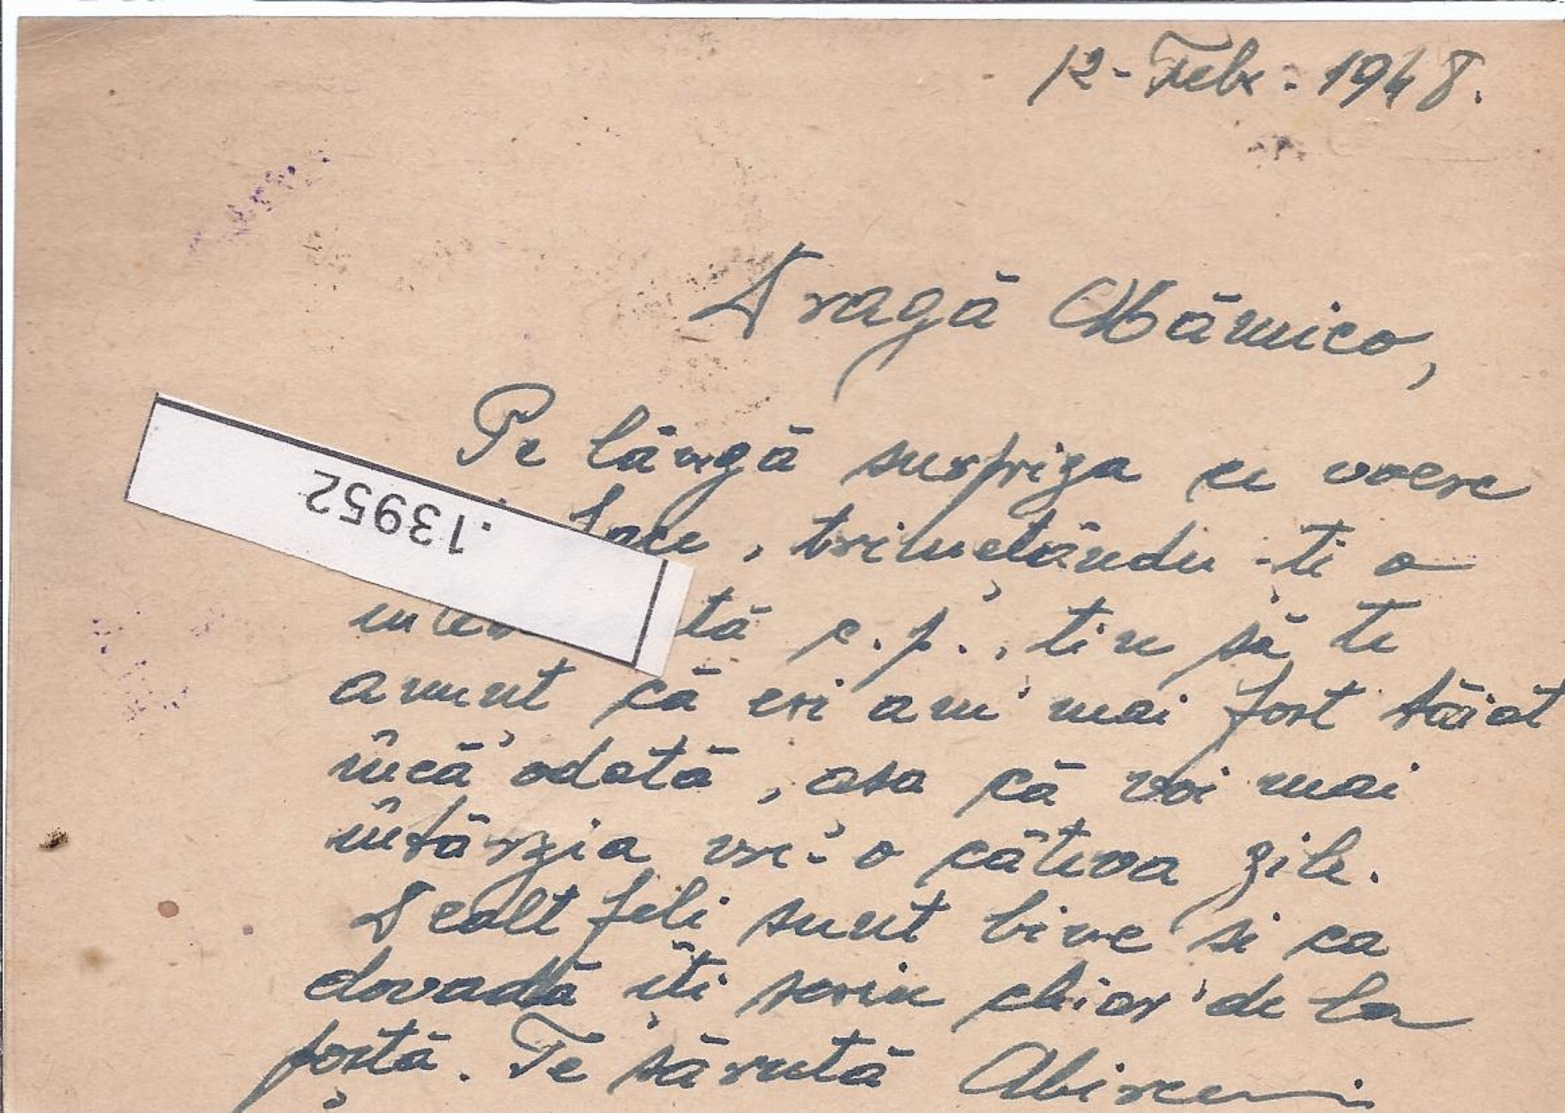 12 - Febr. 1948.
Dragă Mămico,
Pe lângă surpriza ce voesc
face, trimețându-ți o
.13952
tă c.p., țin să te
anunț că eri am mai fost tăiat
încă odată, așa că voi mai
întârzia vre-o câteva zile.
Dealtfeli sunt bine și ca
dovadă îți scriu chiar de la
poștă. Te sărută